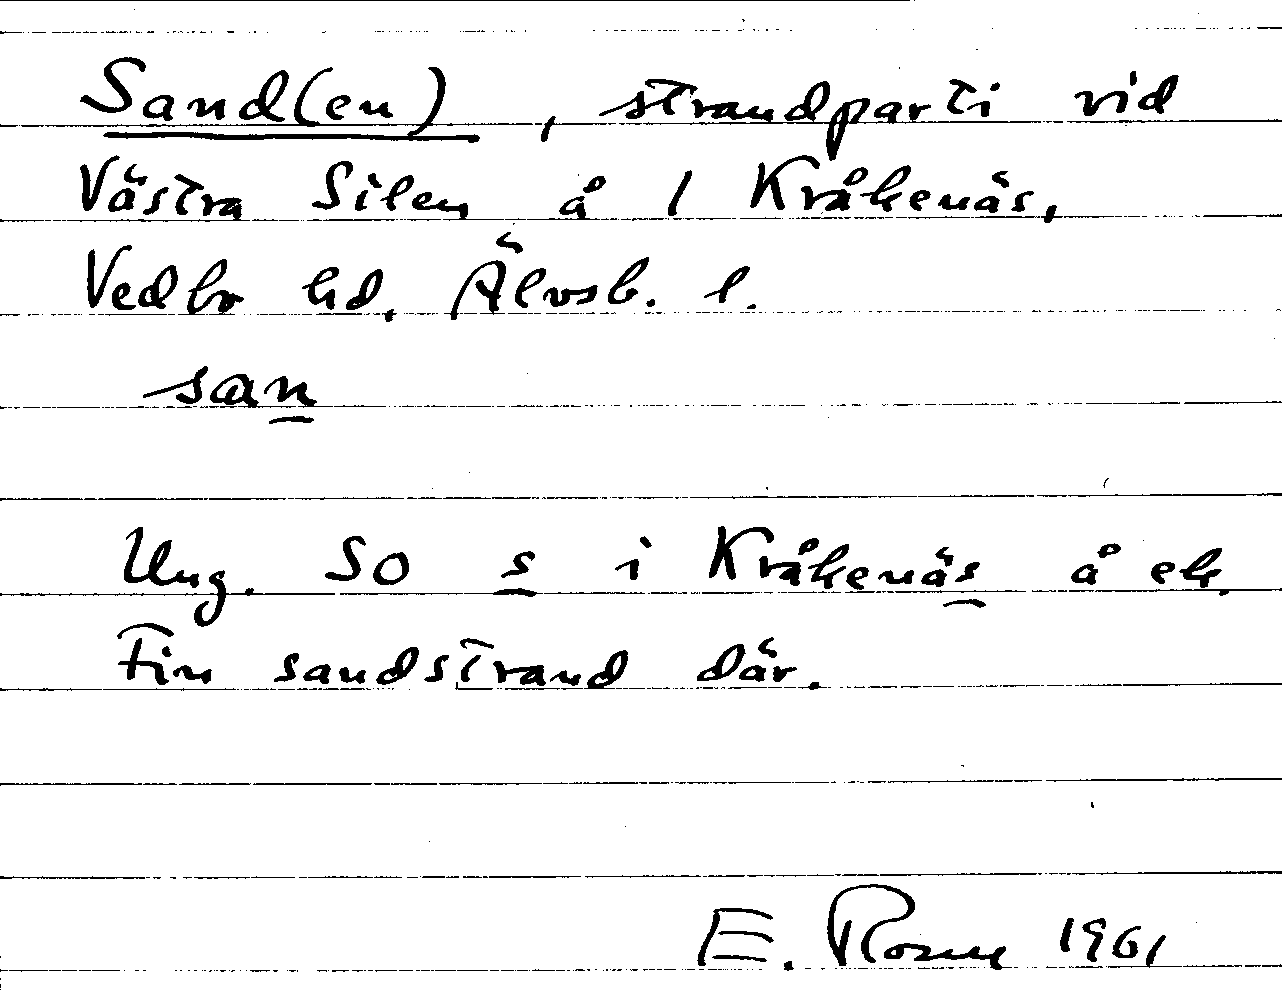 Sand(en), strandparti vid
Västra Silen å 1 Kråkenäs,
Vedbo hd. Älvsb. l.
san
Ung. SO s i Kråkenäs å ek.
Fin sandstrand där.
E. 1961